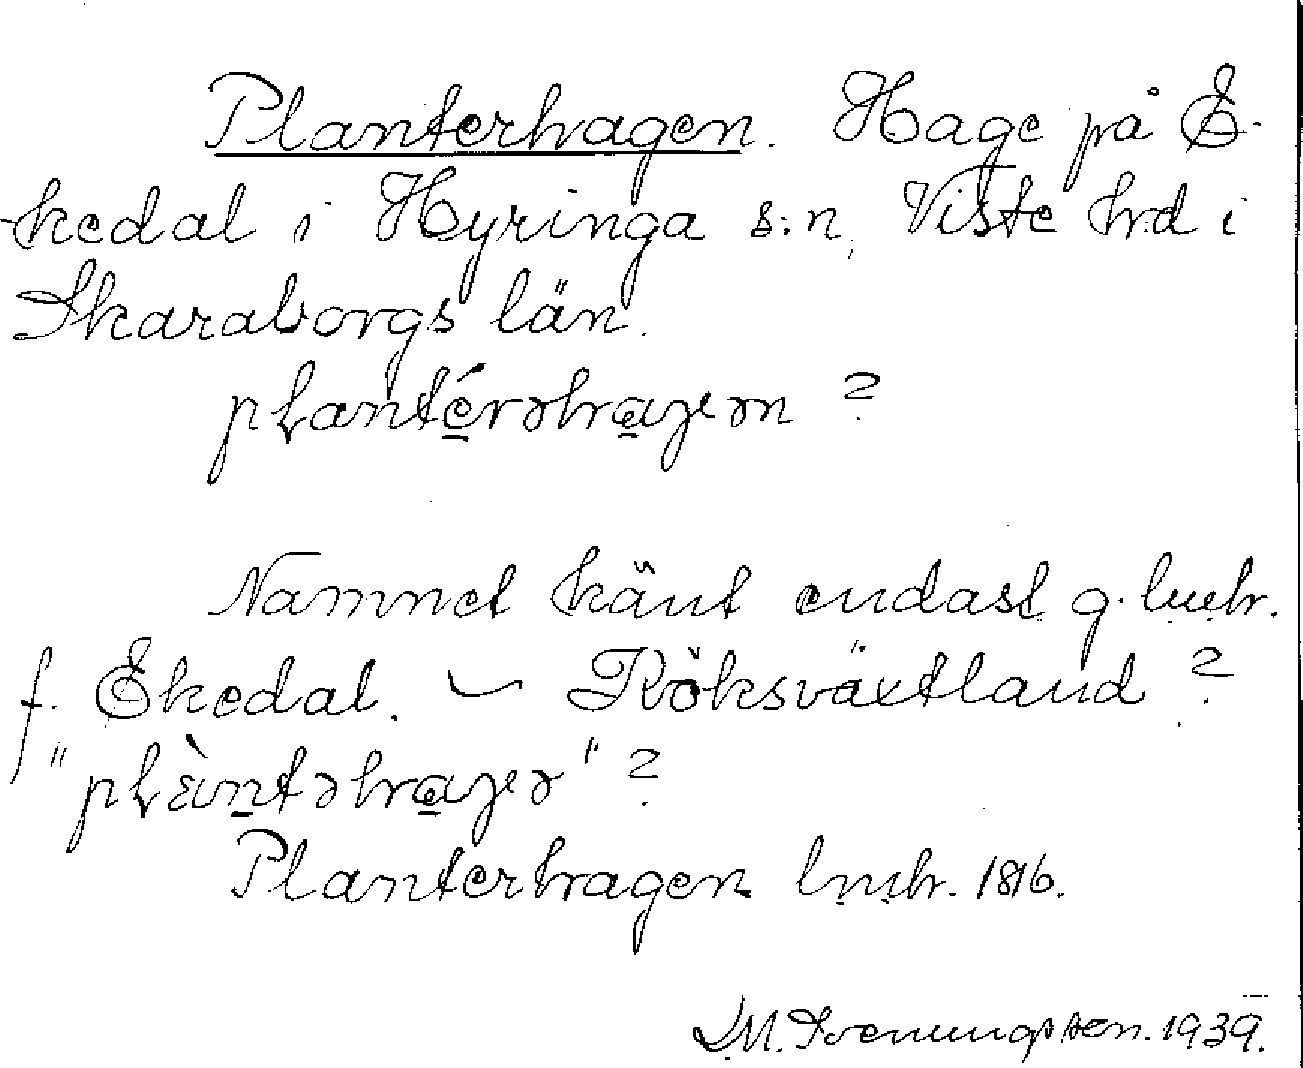 Planterhagen. Hage på E-
kedal i Hyringa s:n, Viste hrd i
Skaraborgs län.
plantérəhagen ?
Namnet känt endast g. lmhr.
f. Ekedal. — Köksväxtland ?
"plàntəhagen" ?
Planterhagen lmhr. 1816.
D.M. Svenungsson. 1939.